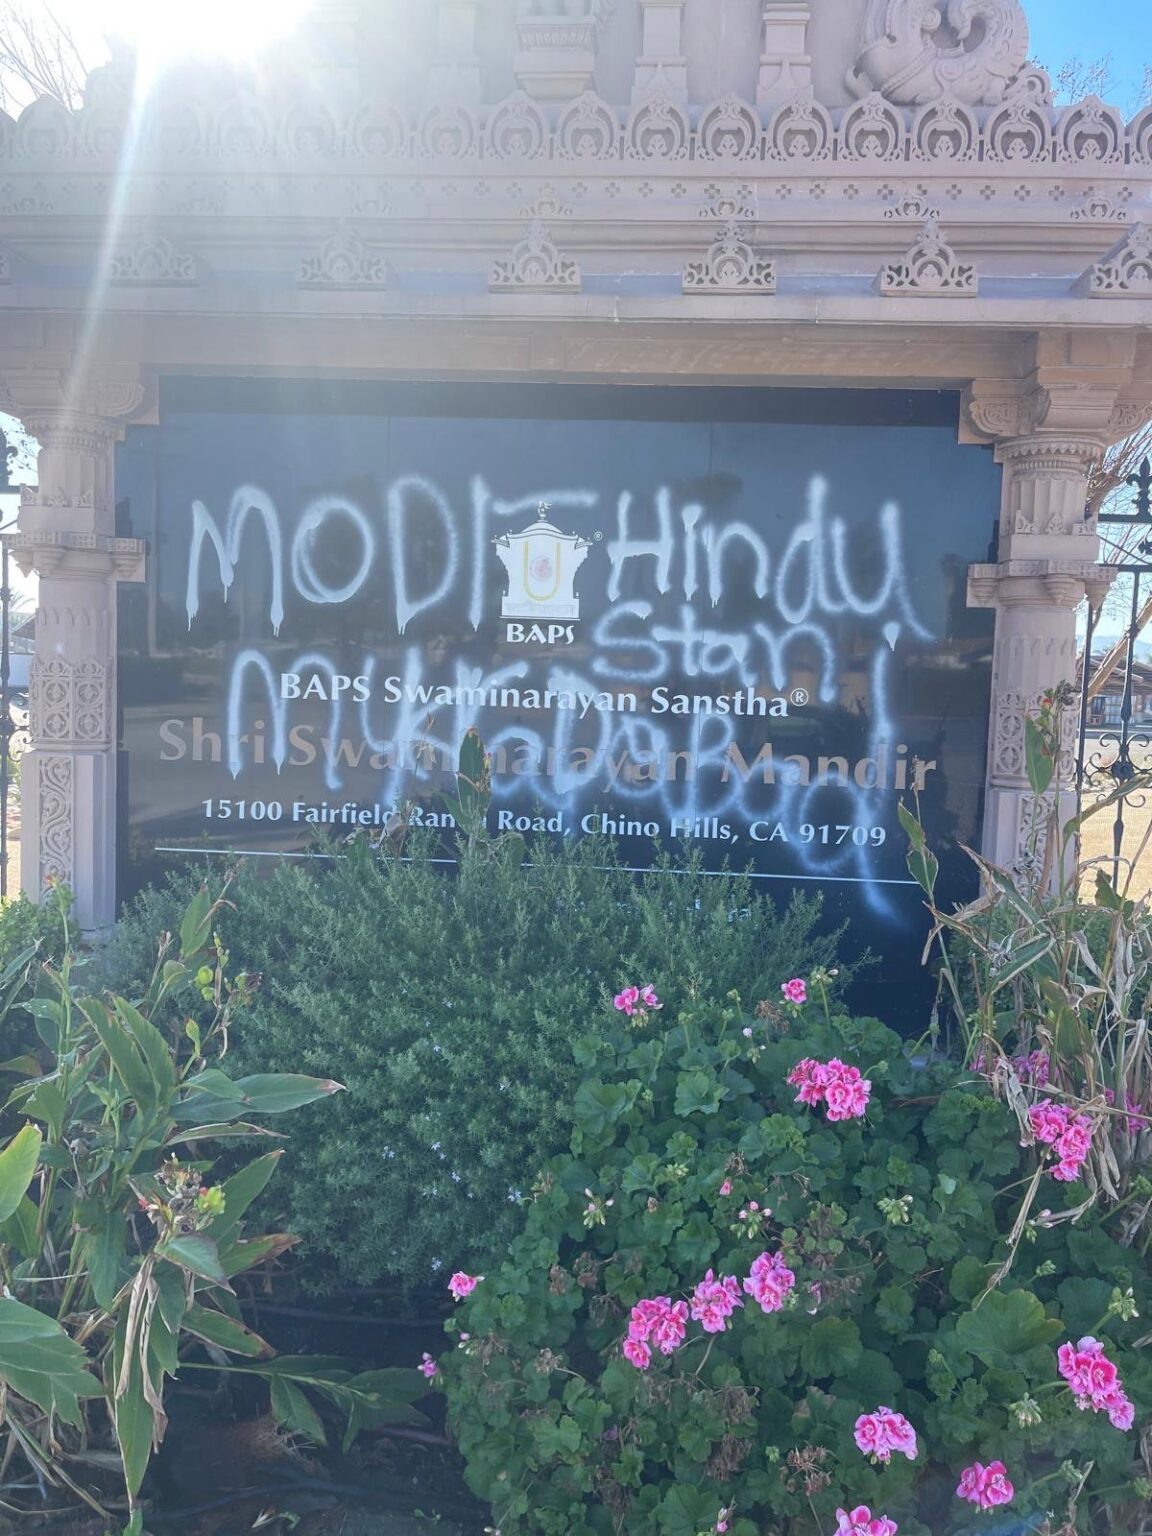 MODI - Hindu
Stan
MURDABAD!
®
BAPS
BAPS Swaminarayan Sanstha®
Shri Swaminarayan Mandir
15100 Fairfield Ranch Road, Chino Hills, CA 91709